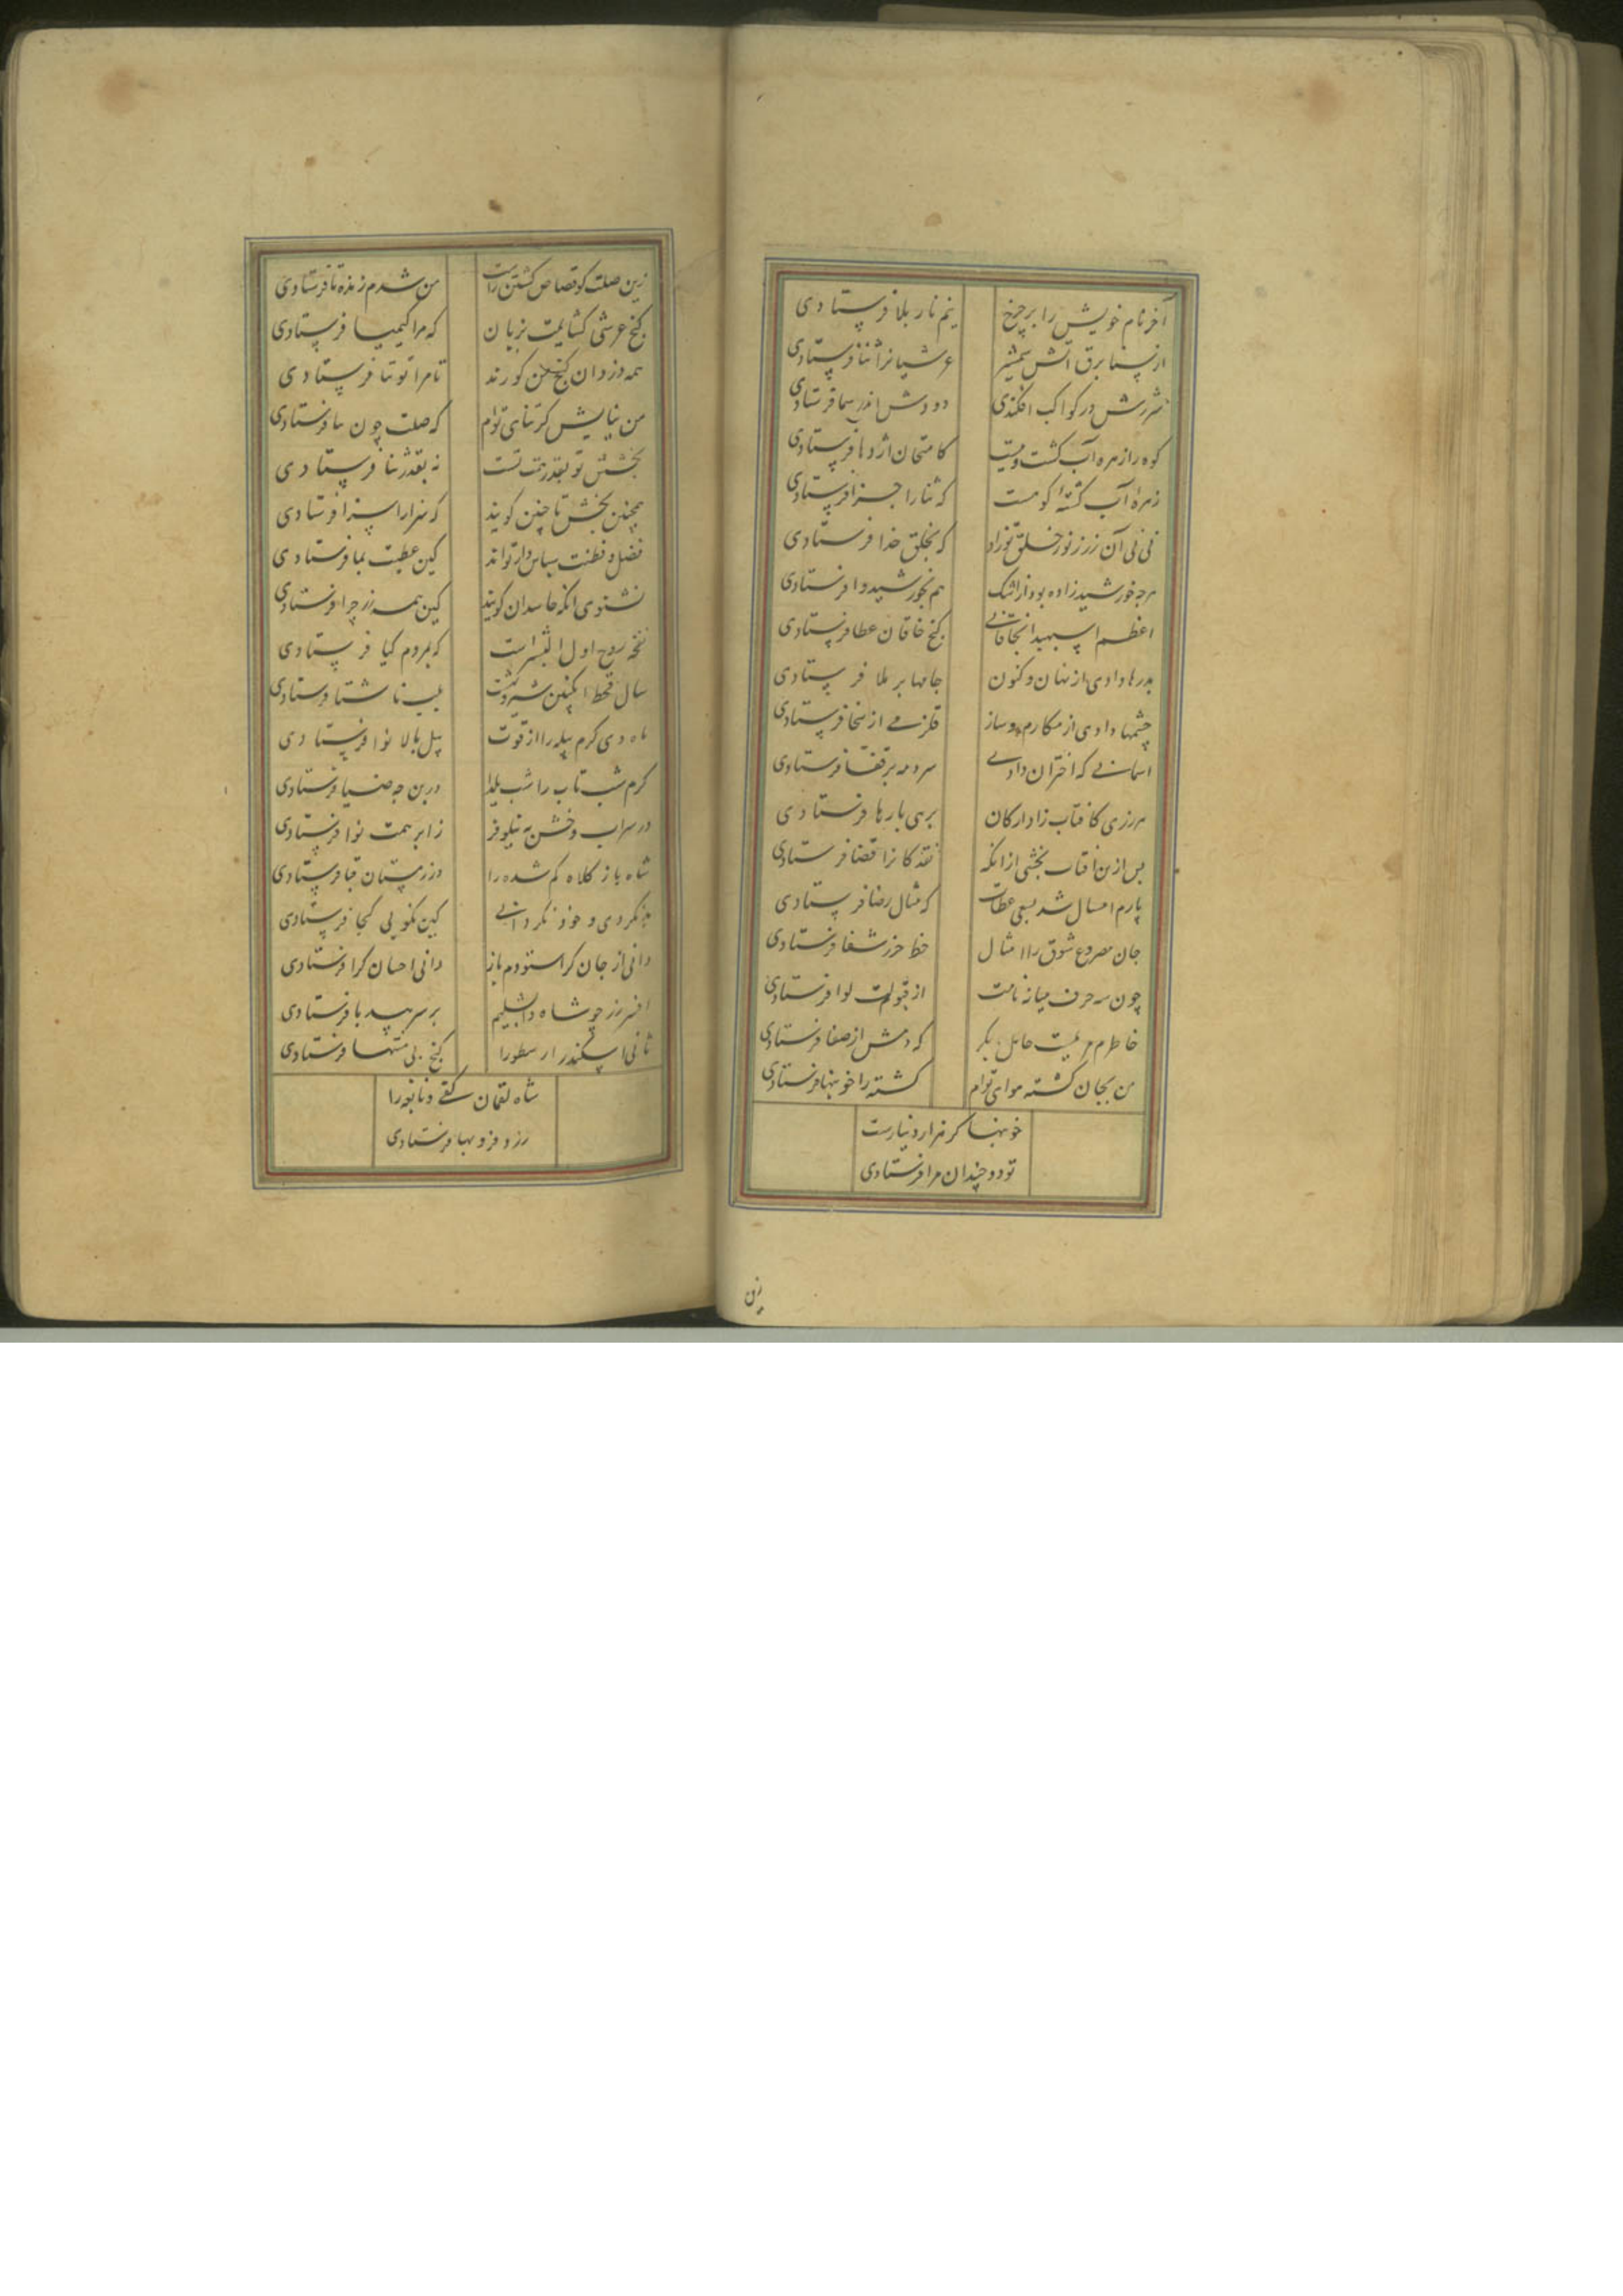 آخر نام خویش را بر چرخ
بنم نار بلا فرستادی
از سنا برق آتش شمشیر
عرشیانرا ثنا فرستادی
شررش در کواکب افکندی
دودش اندر سما فرستادی
کوه را زهره آب کشت
کامتحان اژدها فرستادی
زهرهٔ آب کشته کوست
که ثنا را جزا فرستادی
نی نی آن زر ز نور خلق تو زاد
که بخلق خدا فرستادی
هرچه خورشید زاده بود از اشک
هم بخورشید وا فرستادی
اعظم اسپهبدا بخاقانی
کنج خاقان عطا فرستادی
بدرها دادی از نهان و کنون
جامها بر ملا فرستادی
چشمها دادی از مکارم و ساز
قلزمی از سخا فرستادی
آسمانی که اختران دادی
مه بر قفا فرستادی
هر زری کافتاب زاد ارکان
برهی بارها فرستادی
پس ازین آفتاب بخشی ازانکه
نقد کانرا قضا فرستادی
پارم امسال شد بسعی عطات
که مثال رضا فرستادی
جان مصروع شوق را امثال
خط حرز شفا فرستادی
چون سه حرف میانه نامت
از قبولت لوا فرستادی
خاطرم مریمیست حامل بکر
که دمش از صفا فرستادی
من بجان کشته هوای توام
کشته را خونبها فرستادی
خونبها کر هزار دینارست
تو دو چندان مرا فرستادی
زین
زین صلت کو قصاص کشتن راست
من شدم زنده تا فرستادی
کنج عرشی کشایمت بزبان
که مرا کیمیا فرستادی
همه دزدان کنج من کورند
تا مرا توتیا فرستادی
من نیایش کر نیای توام
که صلت چون نیا فرستادی
بخشش تو بقدر همت تست
نه بقدر ثنا فرستادی
همچنین بخش تا چنین کویند
که سزا را سزا فرستادی
فضل و فطنت سپاس دار تواند
کین عطیت بما فرستادی
نشنوی آنکه حاسدان کویند
کین همه زر چرا فرستادی
نفخه روح اول البشر است
که بمردم کیا فرستادی
سال قحط انکبین و شیر بهشت
بلب ناشتا فرستادی
ماه دی کرم پیله را از قوت
پیل بالا نوا فرستادی
کرم شب تاب را شب یلدا
در بن چه ضیا فرستادی
در سراب وحش به نیلوفر
ز ابر همت نوا فرستادی
شاه باز کلاه کم شده را
در زمستان قبا فرستادی
بد نکردی و خود نکردانی
کین نکویی کجا فرستادی
دانی از جان کرا ستودم باز
دانی احسان کرا فرستادی
افسر زر چو شاه دابشلیم
بر سر بیدپا فرستادی
ثانی اسکندر ارسطو را
کنج بی منتها فرستادی
شاه لقمان کفی و نابغه را
زر و فر و بها فرستادی